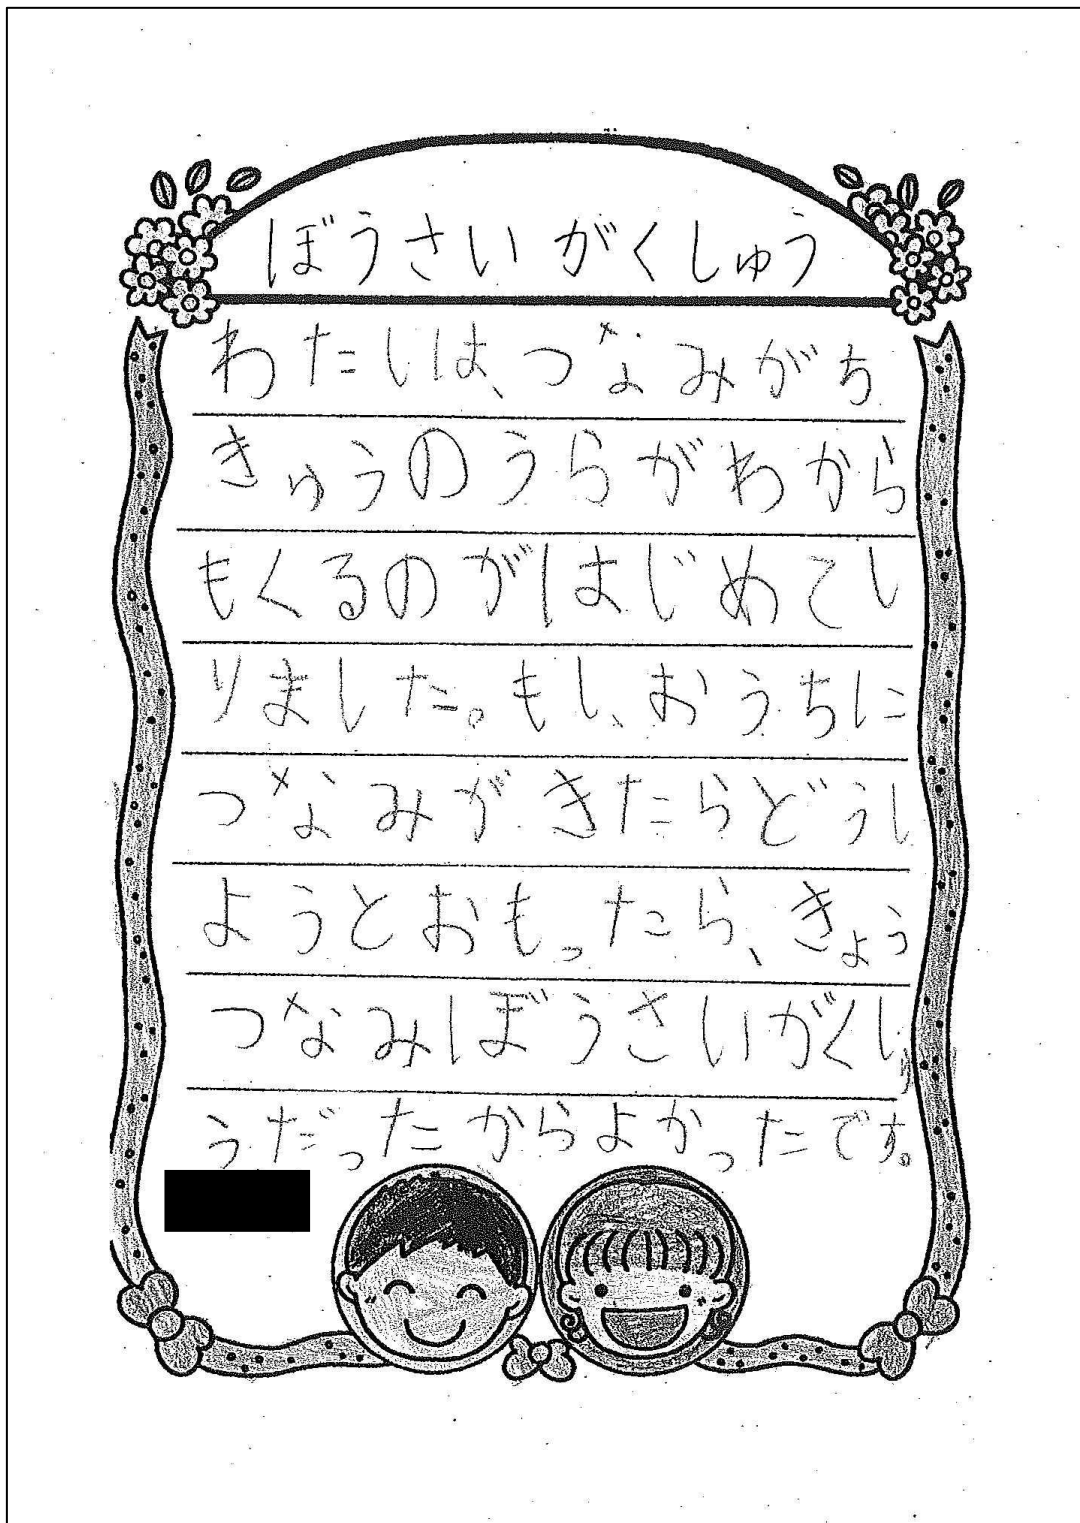 ぼうさいがくしゅう
わたしは、つなみがち
きゅうのうらがわから
もくるのがはじめてし
りました。もし、おうちに
つなみがきたらどうし
ようとおもったら、きょう
つなみぼうさいがくしゅ
うだったからよかったです。